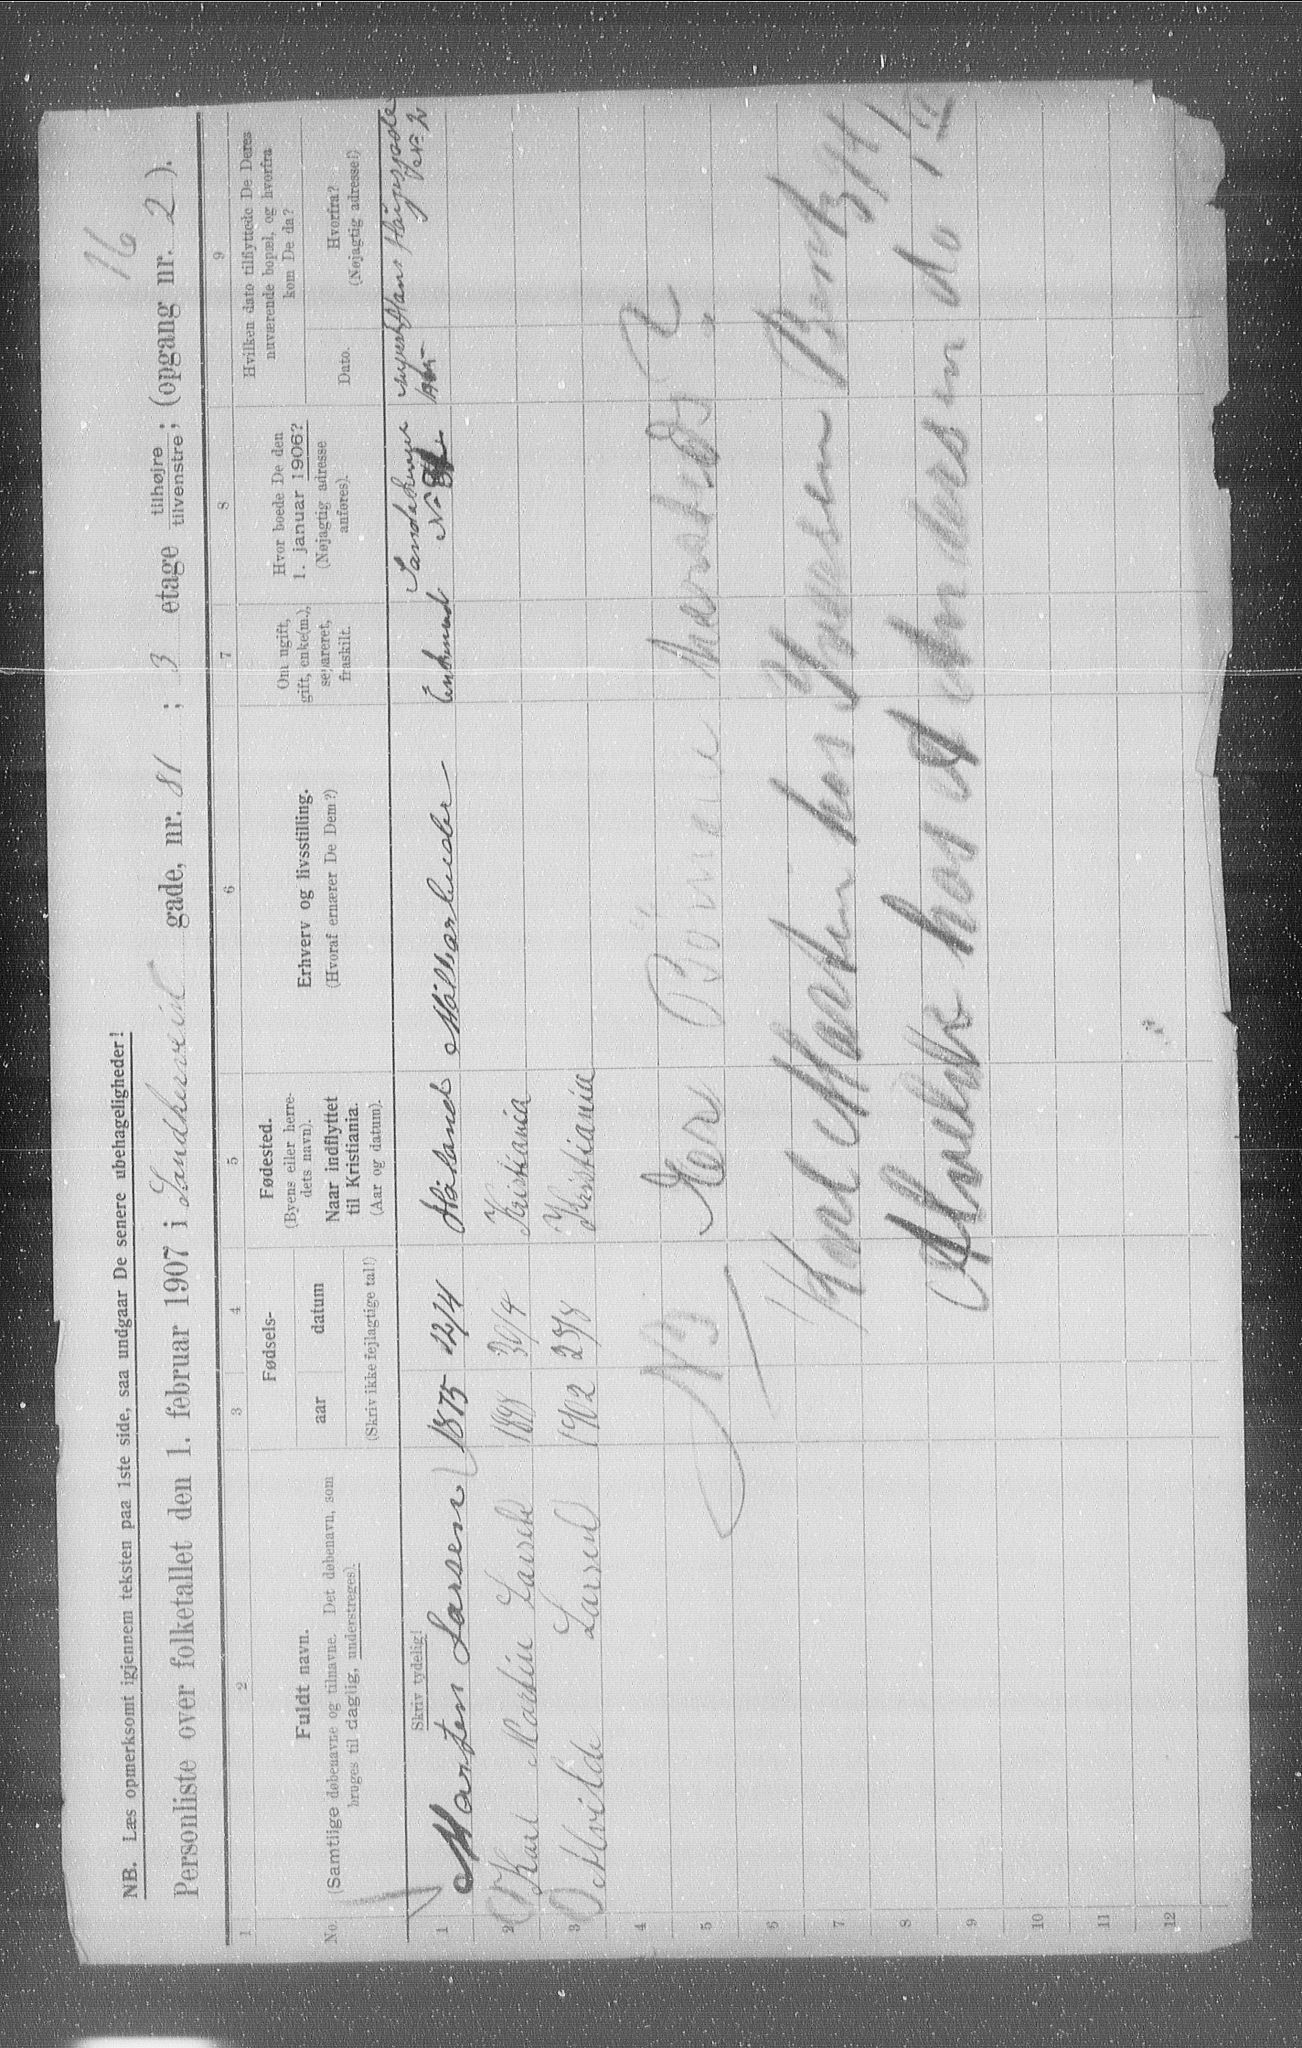 16
NB. Læs opmerksomt igjennem teksten paa 1ste side, saa undgaar De senere ubehageligheder!
Personliste over folketallet den 1. februar 1907 i Sandkerveien gade, nr. 81 ; 3 etage tilhøjre tilvenstre; (opgang nr. 2 ).
1 2 3 4 5 6 7 8 9
No.
Fuldt navn.
(Samtlige døbenavne og tilnavne. Det døbenavn, som
bruges til daglig, understreges).
Skriv tydelig!
Fødsels-
aar datum
(Skriv ikke fejlagtige tal!)
Fødested.
(Byens eller herre-
dets navn).
Naar indflyttet
til Kristiania.
(Aar og datum).
Erhverv og livsstilling.
(Hvoraf ernærer De Dem?)
Om ugift,
gift, enke(m.),
separeret,
fraskilt.
Hvor boede De den
1. januar 1906?
(Nøjagtig adresse
anføres).
Hvilken dato tilflyttede De Deres
nuværende bopæl, og hvorfra
kom De da?
Dato.
Hvorfra?
(Nøjagtig adresse!)
1 Morten Larsen 1875 12/4 Enkemand No 2
2 Karl Martin Larsen 1898 30/4 Kristiania
3 Alvilde Larsen 1902 28/8 Kristiania
4
5 NB Er Börnene
6
7 Karl Martin hos Iversen
8
9 Alvilde hos A Andersen do
10
11
12